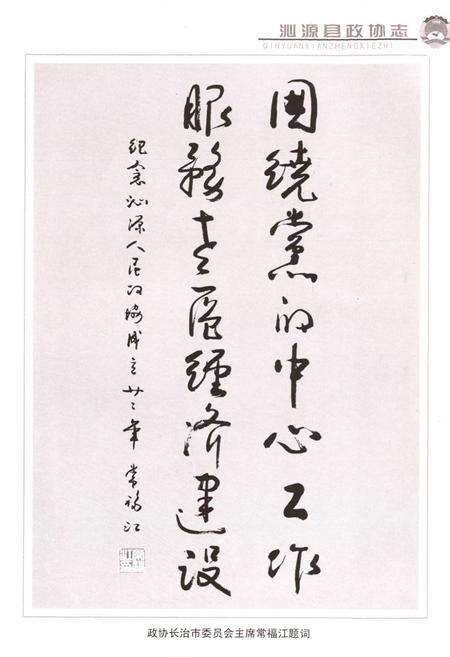 沁源县政协志
QINYUANXIANZHENGXIEZHI
围绕党的中心工作
服务老区经济建设
纪念沁源人民政协成立廿二年 常福江
政协长治市委员会主席常福江题词